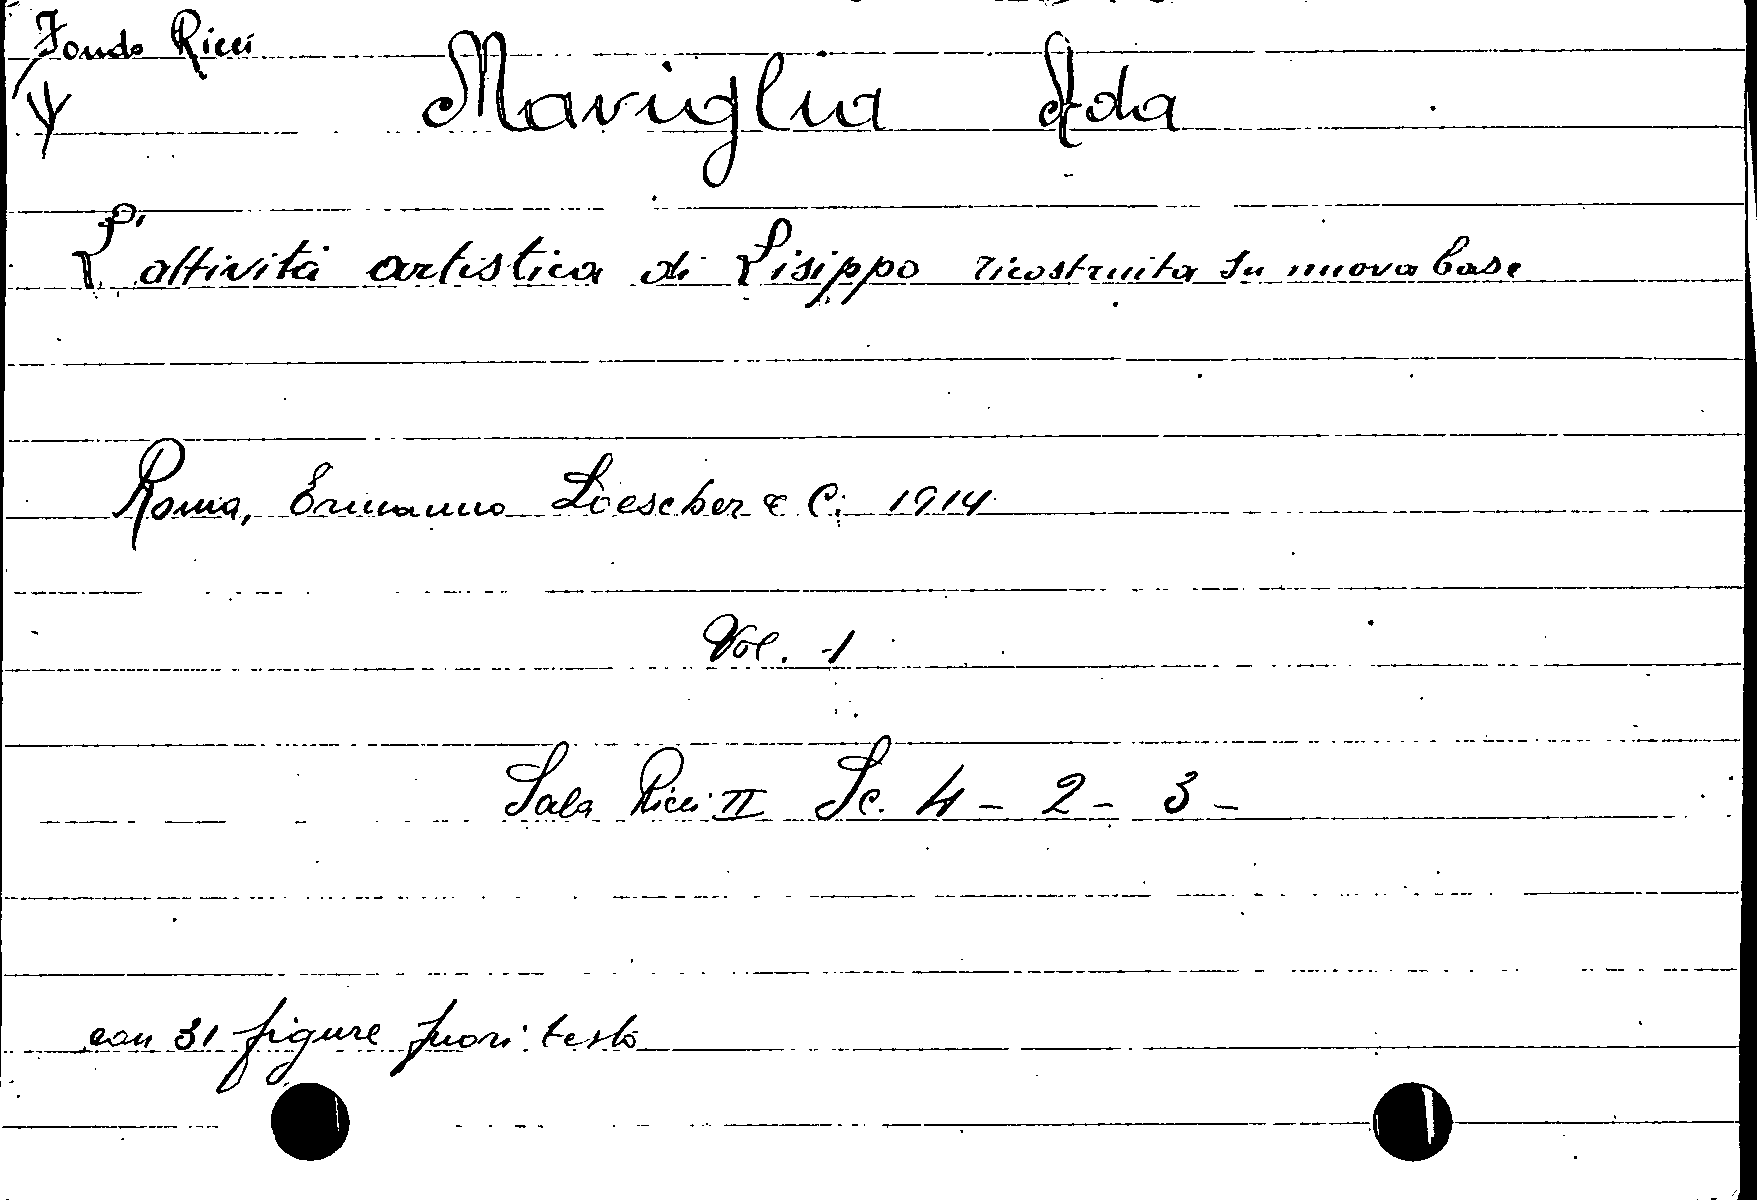 Fondo Ricci
ψ Maviglia Ada
L'attività artistica di Lisippo ricostruita su nuova base
Roma, Ermanno Loescher & C. 1914
Vol. 1
Sala Ricci II Sc. 4 - 2 - 3 -
con 31 figure fuori testo